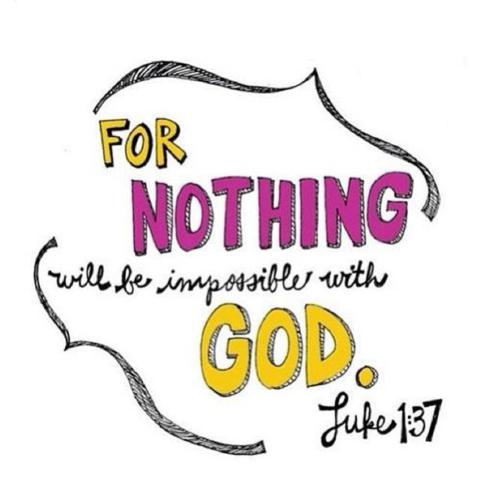 FOR
NOTHING
will be impossible with
GOD.
Luke 1:37